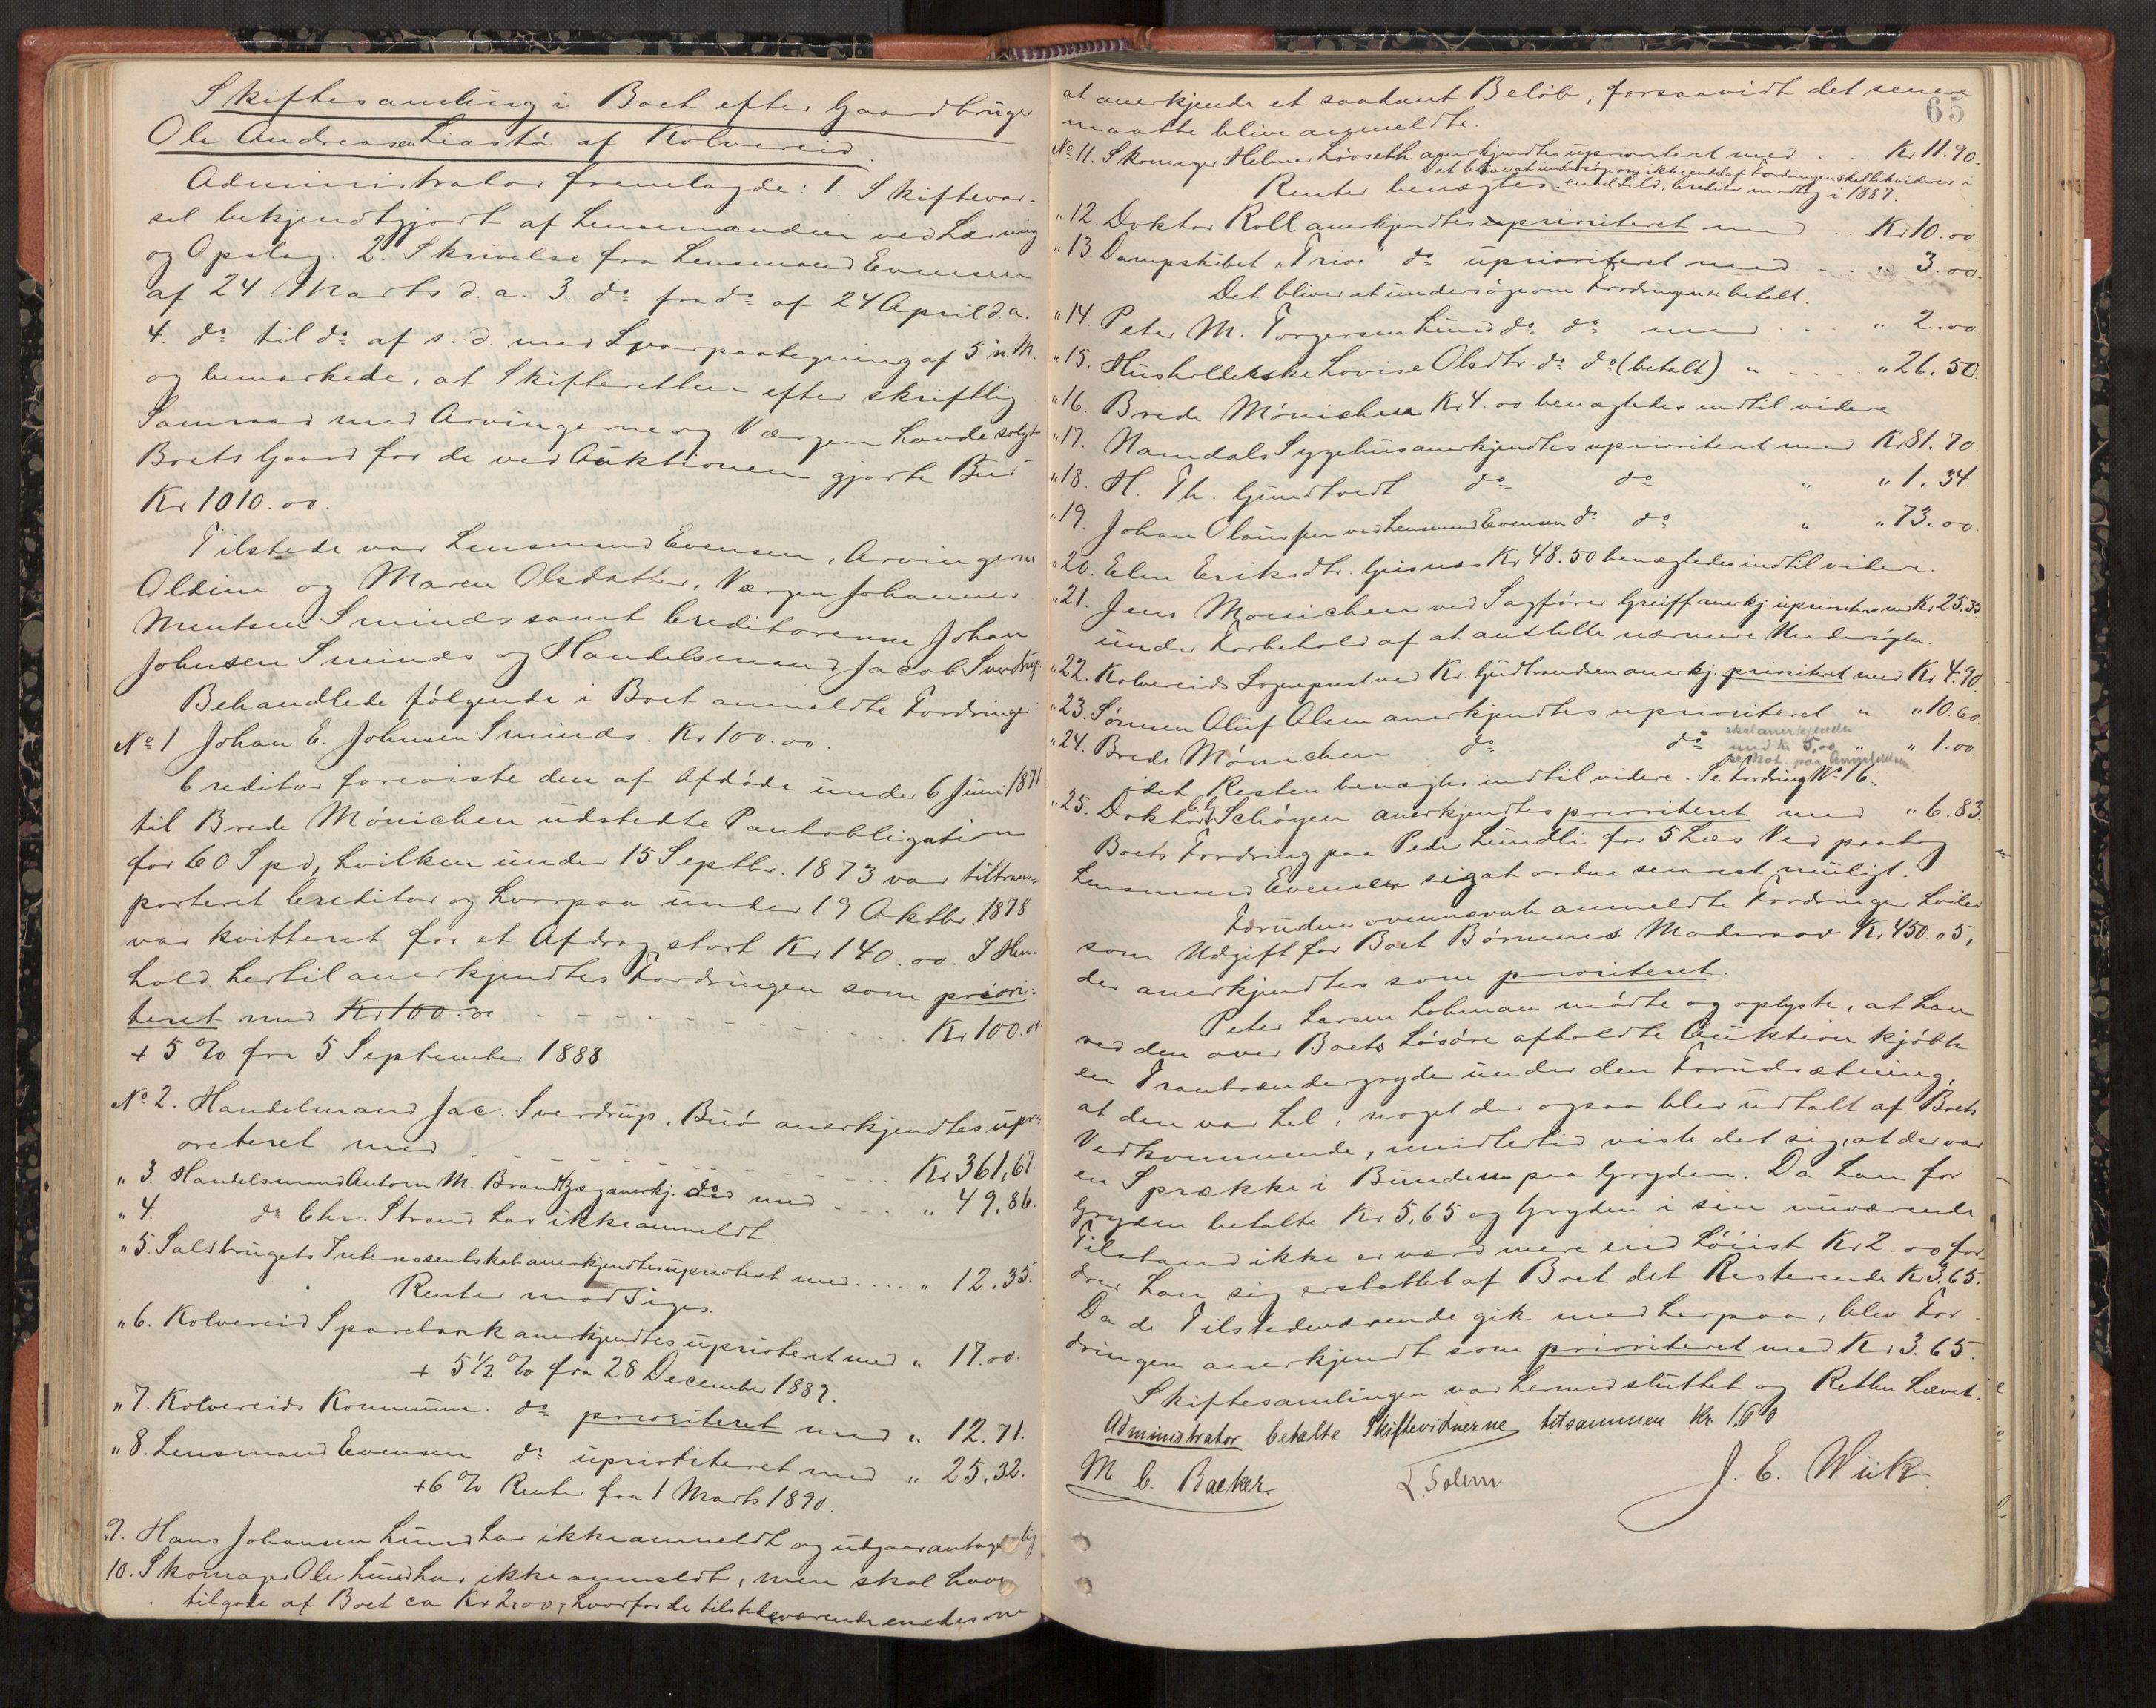 Skiftesamling i Boet efter Gaardbruger
Ole Andreassen Liastø af Kolvereid.
Administrator fremlagde: 1. Skiftevar-
sel bekjendtgjort af Lensmanden ved Læsning
og Opslag. 2. Skrivelse fra Lensmand Evensen
af 24 Marts d. a. 3. do fra do af 24 April d. a.
4. do til do af s. d. med Svarpaategning af 5 n. M.
og bemærkede, at Skifteretten efter skriftlig
Samraad med Arvingerne og Værgen havde solgt
Boets Gaard for de ved Auktionen gjorte Bud
Kr 1010.00.
Tilstede var Lensmand Evensen, Arvingerne
Oldine og Maren Olsdatter, Værgen Johannes
Mentsen Sminds samt Creditorerne Johan
Johnsen Sminds og Handelsmand Jacob Sverdrup.
Behandlede følgende i Boet anmeldte Fordringer:
No 1 Johan E. Johnsen Sminds. Kr 100.00.
Creditor foreviste den af Afdøde under 6 Juni 1871
til Brede Mönichen udstedte Pantobligation
for 60 Spd, hvilken under 15 Septbr. 1873 var tiltrans-
porteret Creditor og hvorpaa under 19 Oktbr. 1878
var kvitteret for et Afdrag stort Kr 140.00. I Hen-
hold hertil anerkjendtes Fordringen som priori-
teret med Kr 100.00 . . . Kr 100.00
+ 5 % fra 5 September 1888.
No 2. Handelmand Jac. Sverdrup, Buø anerkjendtes upri-
oriteret med . . . Kr 361,67.
" 3. Handelsmand Anton M. Brandtzæg anerkj. do med . . . " 49.86.
" 4. do Chr. Strand har ikke anmeldt.
" 5. Salsbrugets Interessentskab anerkjendtes uprioteret med . . . " 12.35.
Renter modsiges.
" 6. Kolvereid Sparebank anerkjendtes uprioteret med " 17.00.
+ 5 1/2 % fra 28 December 1889.
" 7. Kolvereids Kommune do prioriteret med " 12.71.
" 8. Lensmand Evensen do uprioriteret med " 25.32.
+ 6 % Renter fra 1 Marts 1890.
9. Hans Johansen Lund har ikke anmeldt og udgaar antagelig
10. Skomager Ole Lund har ikke anmeldt, men skal have
tilgode af Boet ca Kr 2.00, hvorfor de tilstedeværende enedes om
65
at anerkjende et saadant Beløb, forsaavidt det senere
maatte blive anmeldte.
No 11. Skomager Helmer Løvseth anerkjendtes uprioriteret med . . . Kr 11.90.
Det bliver at undersøge om ikke endel af Fordringen skal likvideres i
Renter benægtes. endel Sild, Creditor modtog i 1887.
" 12. Doktor Roll anerkjendtes uprioriteret med . . Kr 10.00.
" 13. Dampskibet "Trio" do uprioriteret med . . . " 3.00.
Det bliver at undersøge om Fordringen er betalt.
" 14. Peter M. Torgersen Lund do do med . . . " 2.00.
" 15. Husholderske Lovise Olsdtr. do do (betalt) " . . . " 26.50.
" 16. Brede Mönichen Kr 4.00 benægtedes indtil videre
" 17. Namdals Sygehus anerkjendtes uprioriteret med Kr 81.70.
" 18. H. Th. Gundtvedt do do " " 1.34.
" 19. Johan Olaussen ved Lensmand Evensen do do " " 73.00.
" 20. Elen Eriksdtr. Grisnæs Kr 48.50 benægtedes indtil videre.
" 21. Jens Monichen ved Sagfører Greiff anerkj. uprioriteret med Kr 25.33
under Forbehold af at anstille nærmere Undersøgelse.
" 22. Kolvereids Sognepræst ved Kr. Gudbrandsen anerkj. prioriteret med Kr 4.90.
" 23. Sønnen Oluf Olsen anerkjendtes uprioriteret " " 10.60.
" 24. Brede Mönichen do do " " 1.00.
skal anerkjendes
med Kr 5,00
se Not. paa Anmeldelsen
idet Resten benægtes indtil videre. Se Fordring No 16.
" 25. Doktor Schøyen anerkjendtes prioriteret med " 6.83.
Boets Fordring paa Peder Lundli for 5 Læs Ved paatog
Lensmand Evensen sig at ordne snarest muligt.
Foruden ovennævnte anmeldte Fordringer hviler
som Udgift for Boet Børnenes Modersarv Kr 450.05,
der anerkjendtes som prioriteret.
Peter Larsen Lohman mødte og oplyste, at han
ved den over Boets Løsøre afholdte Auktion kjøbte
en Tranbrændergryde under den Forudsætning,
at den var hel, noget der ogsaa blev udtalt af Boets
Vedkommende, imidlertid viste det sig, at der var
en Sprække i Bunden paa Gryden. Da han for
Gryden betalte Kr 5.65 og Gryden i sin nuværende
Tilstand ikke er værd mere end høiist Kr 2.00 for-
drer han sig erstattet af Boet det Resterende Kr 3.65.
Da de Tilstedeværende gik med herpaa, blev For-
dringen anerkjendt som prioriteret med Kr 3.65.
Skiftesamlingen var hermed sluttet og Retten hævet.
Administrator betalte Skiftevidnerne tilsammen Kr. 1.60
M C. Backer. L. Solem J. E. Wiik